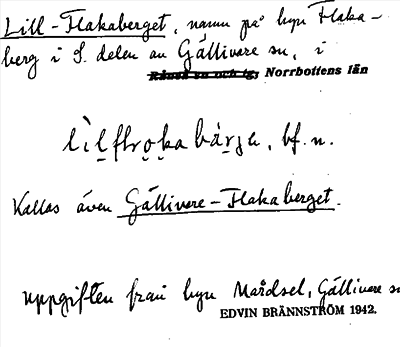 Lill-Flakaberget, namn på byn Flaka-
berg i S. delen av Gällivare sn, i
Råneå sn och tg, Norrbottens län
bf. n.
Kallas även Gällivare-Flakaberget.
uppgiften från byn Mårdsel, Gällivare sn
EDVIN BRÄNNSTRÖM 1942.